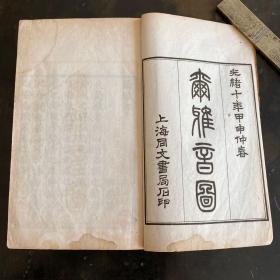 光緒十年甲申仲春
爾雅音圖
上海同文書局石印